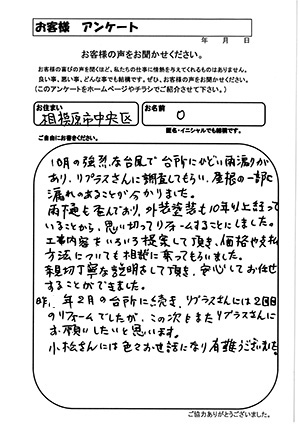 お客様 アンケート
年 月 日
お客様の声をお聞かせください。
お客様の喜びの声を聞くほど、私たちの仕事に情熱を与えてくれるものはありません。
良い事、悪い事、どんな事でも結構です。ぜひ、お客様の声をお聞かせください。
(このアンケートをホームページやチラシでご紹介させて下さい。)
お住まい
相模原市中央区
お名前
O
匿名・イニシャルでも結構です。
ご自由にお書きください。
10月の強烈な台風で台所にひどい雨漏りが
あり、リプラスさんに調査してもらい、屋根の一部に
漏れのあることが分かりました。
雨樋も歪んでおり、外装塗装も10年以上経って
いることから、思い切ってリフォームすることにしました。
工事内容をいろいろ提案して頂き、価格や支払
方法についても相談に乗ってもらいました。
親切丁寧な説明をして頂き、安心してお任せ
することができました。
昨年2月の台所に続き、リプラスさんには2回目
のリフォームでしたが、この次もまたリプラスさんに
お願いしたいと思います。
小松さんには色々お世話になり有難うございました。
ご協力ありがとうございました。